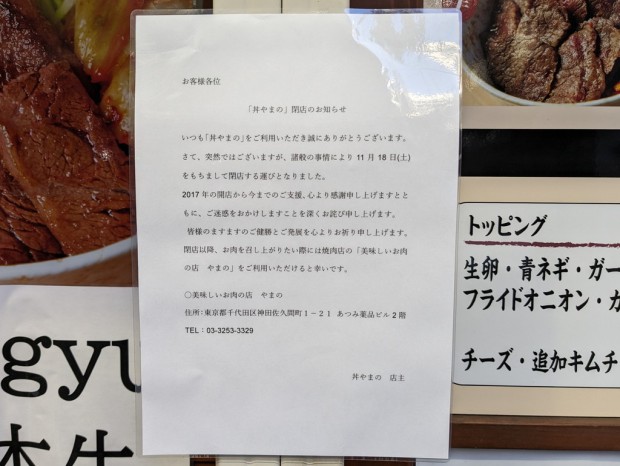 お客様各位
「丼やまの」閉店のお知らせ
いつも「丼やまの」をご利用いただき誠にありがとうございます。
さて、突然ではございますが、諸般の事情により 11 月 18 日(土)
をもちまして閉店する運びとなりました。
2017 年の開店から今までのご支援、心より感謝申し上げますとと
もに、ご迷惑をおかけしますことを深くお詫び申し上げます。
皆様のますますのご健勝とご発展を心よりお祈り申し上げます。
閉店以降、お肉を召し上がりたい際には焼肉店の「美味しいお肉
の店　やまの」をご利用いただけると幸いです。
〇美味しいお肉の店　やまの
住所：東京都千代田区神田佐久間町１－２１ あつみ薬品ビル２階
TEL： 03-3253-3329
丼やまの　店主
トッピング
生卵・青ネギ・ガー
フライドオニオン・カ
チーズ・追加キムチ
gyu